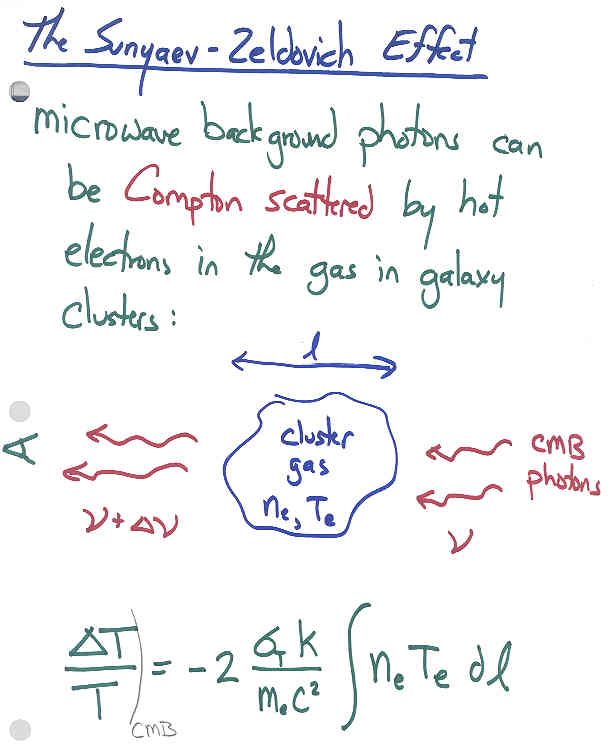 The Sunyaev-Zeldovich Effect
microwave background photons can
be Compton scattered by hot
electrons in the gas in galaxy
clusters:
l
cluster
gas
nₑ, Tₑ
CMB
photons
ν + Δν
ν
ΔT/T)CMB = -2 σ_T k/mₑc² ∫ nₑ Tₑ dl